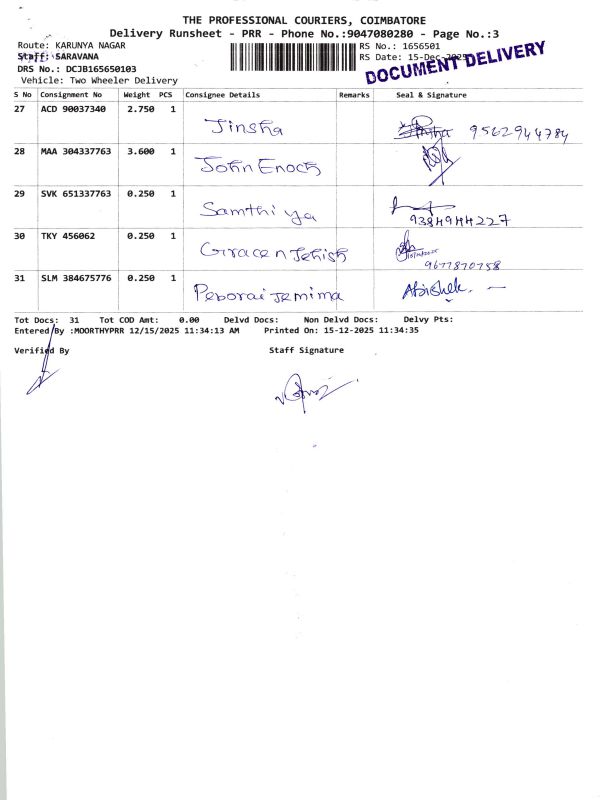 THE PROFESSIONAL COURIERS, COIMBATORE
Delivery Runsheet - PRR - Phone No.:9047080280 - Page No.:3
Route: KARUNYA NAGAR
RS No.: 1656501
Staff: SARAVANA
RS Date: 15-Dec-2025
DRS No.: DCJB165650103
DOCUMENT DELIVERY
Vehicle: Two Wheeler Delivery
S No Consignment No Weight PCS Consignee Details Remarks Seal & Signature
27 ACD 90037340 2.750 1 Jinsha 9562944784
28 MAA 304337763 3.600 1 John Enoch
29 SVK 651337763 0.250 1 Samthiya 9384944227
30 TKY 456062 0.250 1 Gracen Jehish 9677870758
31 SLM 384675776 0.250 1 Peborai Jemima Abishek.
Tot Docs: 31 Tot COD Amt: 0.00 Delvd Docs: Non Delvd Docs: Delvy Pts:
Entered By :MOORTHYPRR 12/15/2025 11:34:13 AM Printed On: 15-12-2025 11:34:35
Verified By Staff Signature